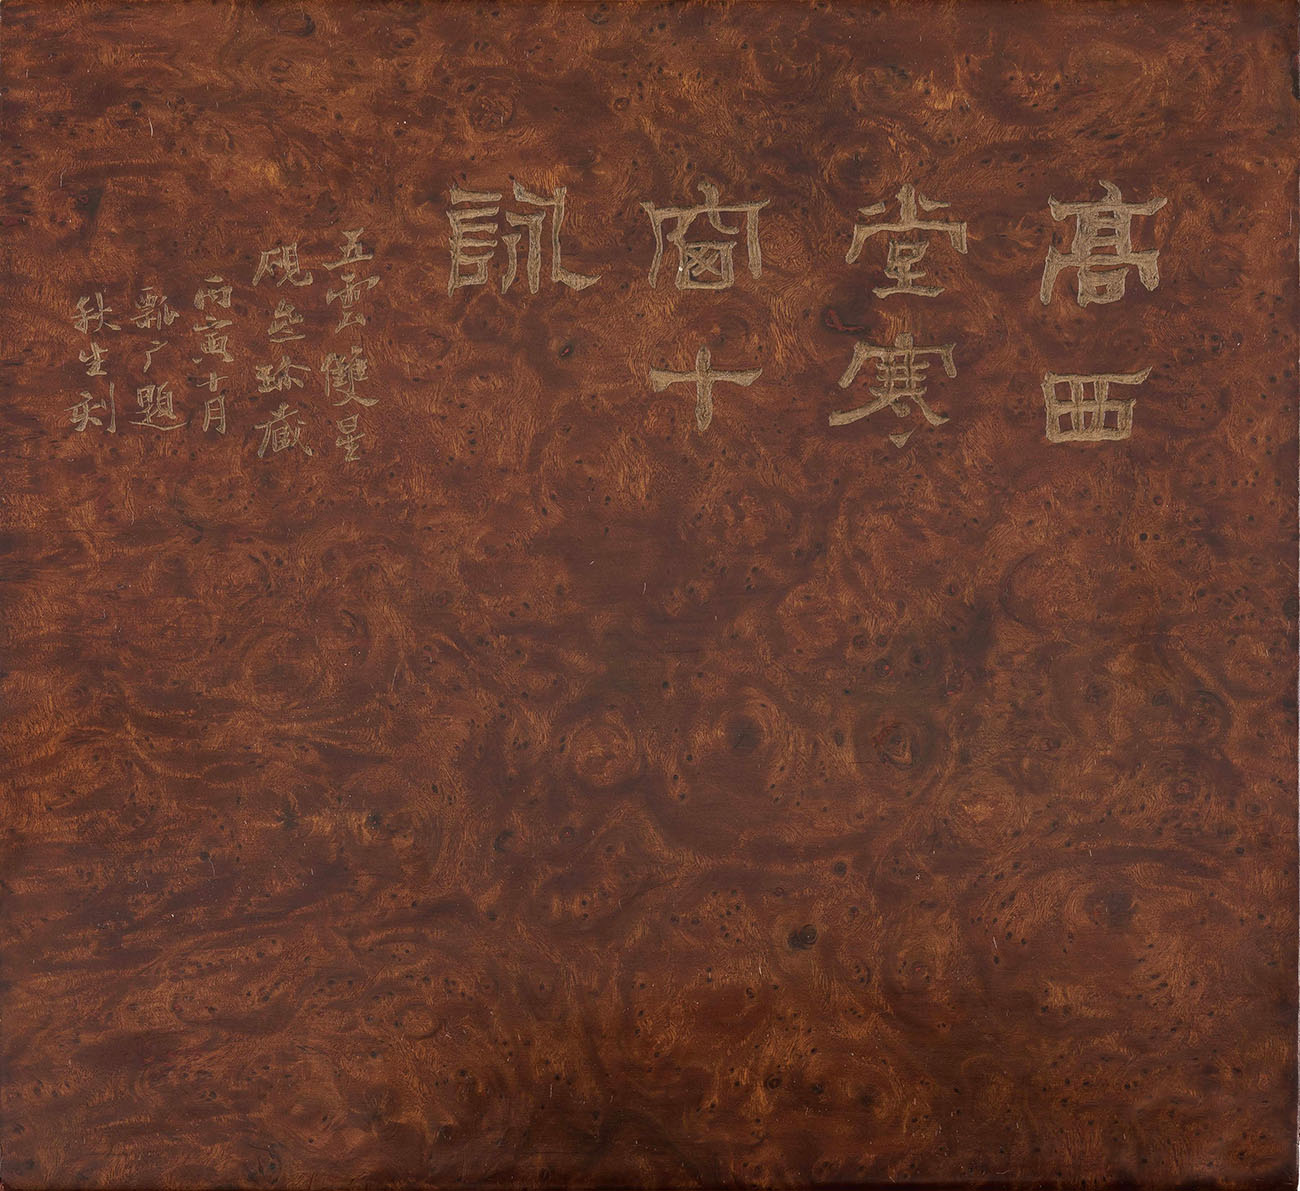 高西
堂寒
窗十
詠
五雲雙星
硯齋珍藏
丙寅十月
瓢广題
秋生刻